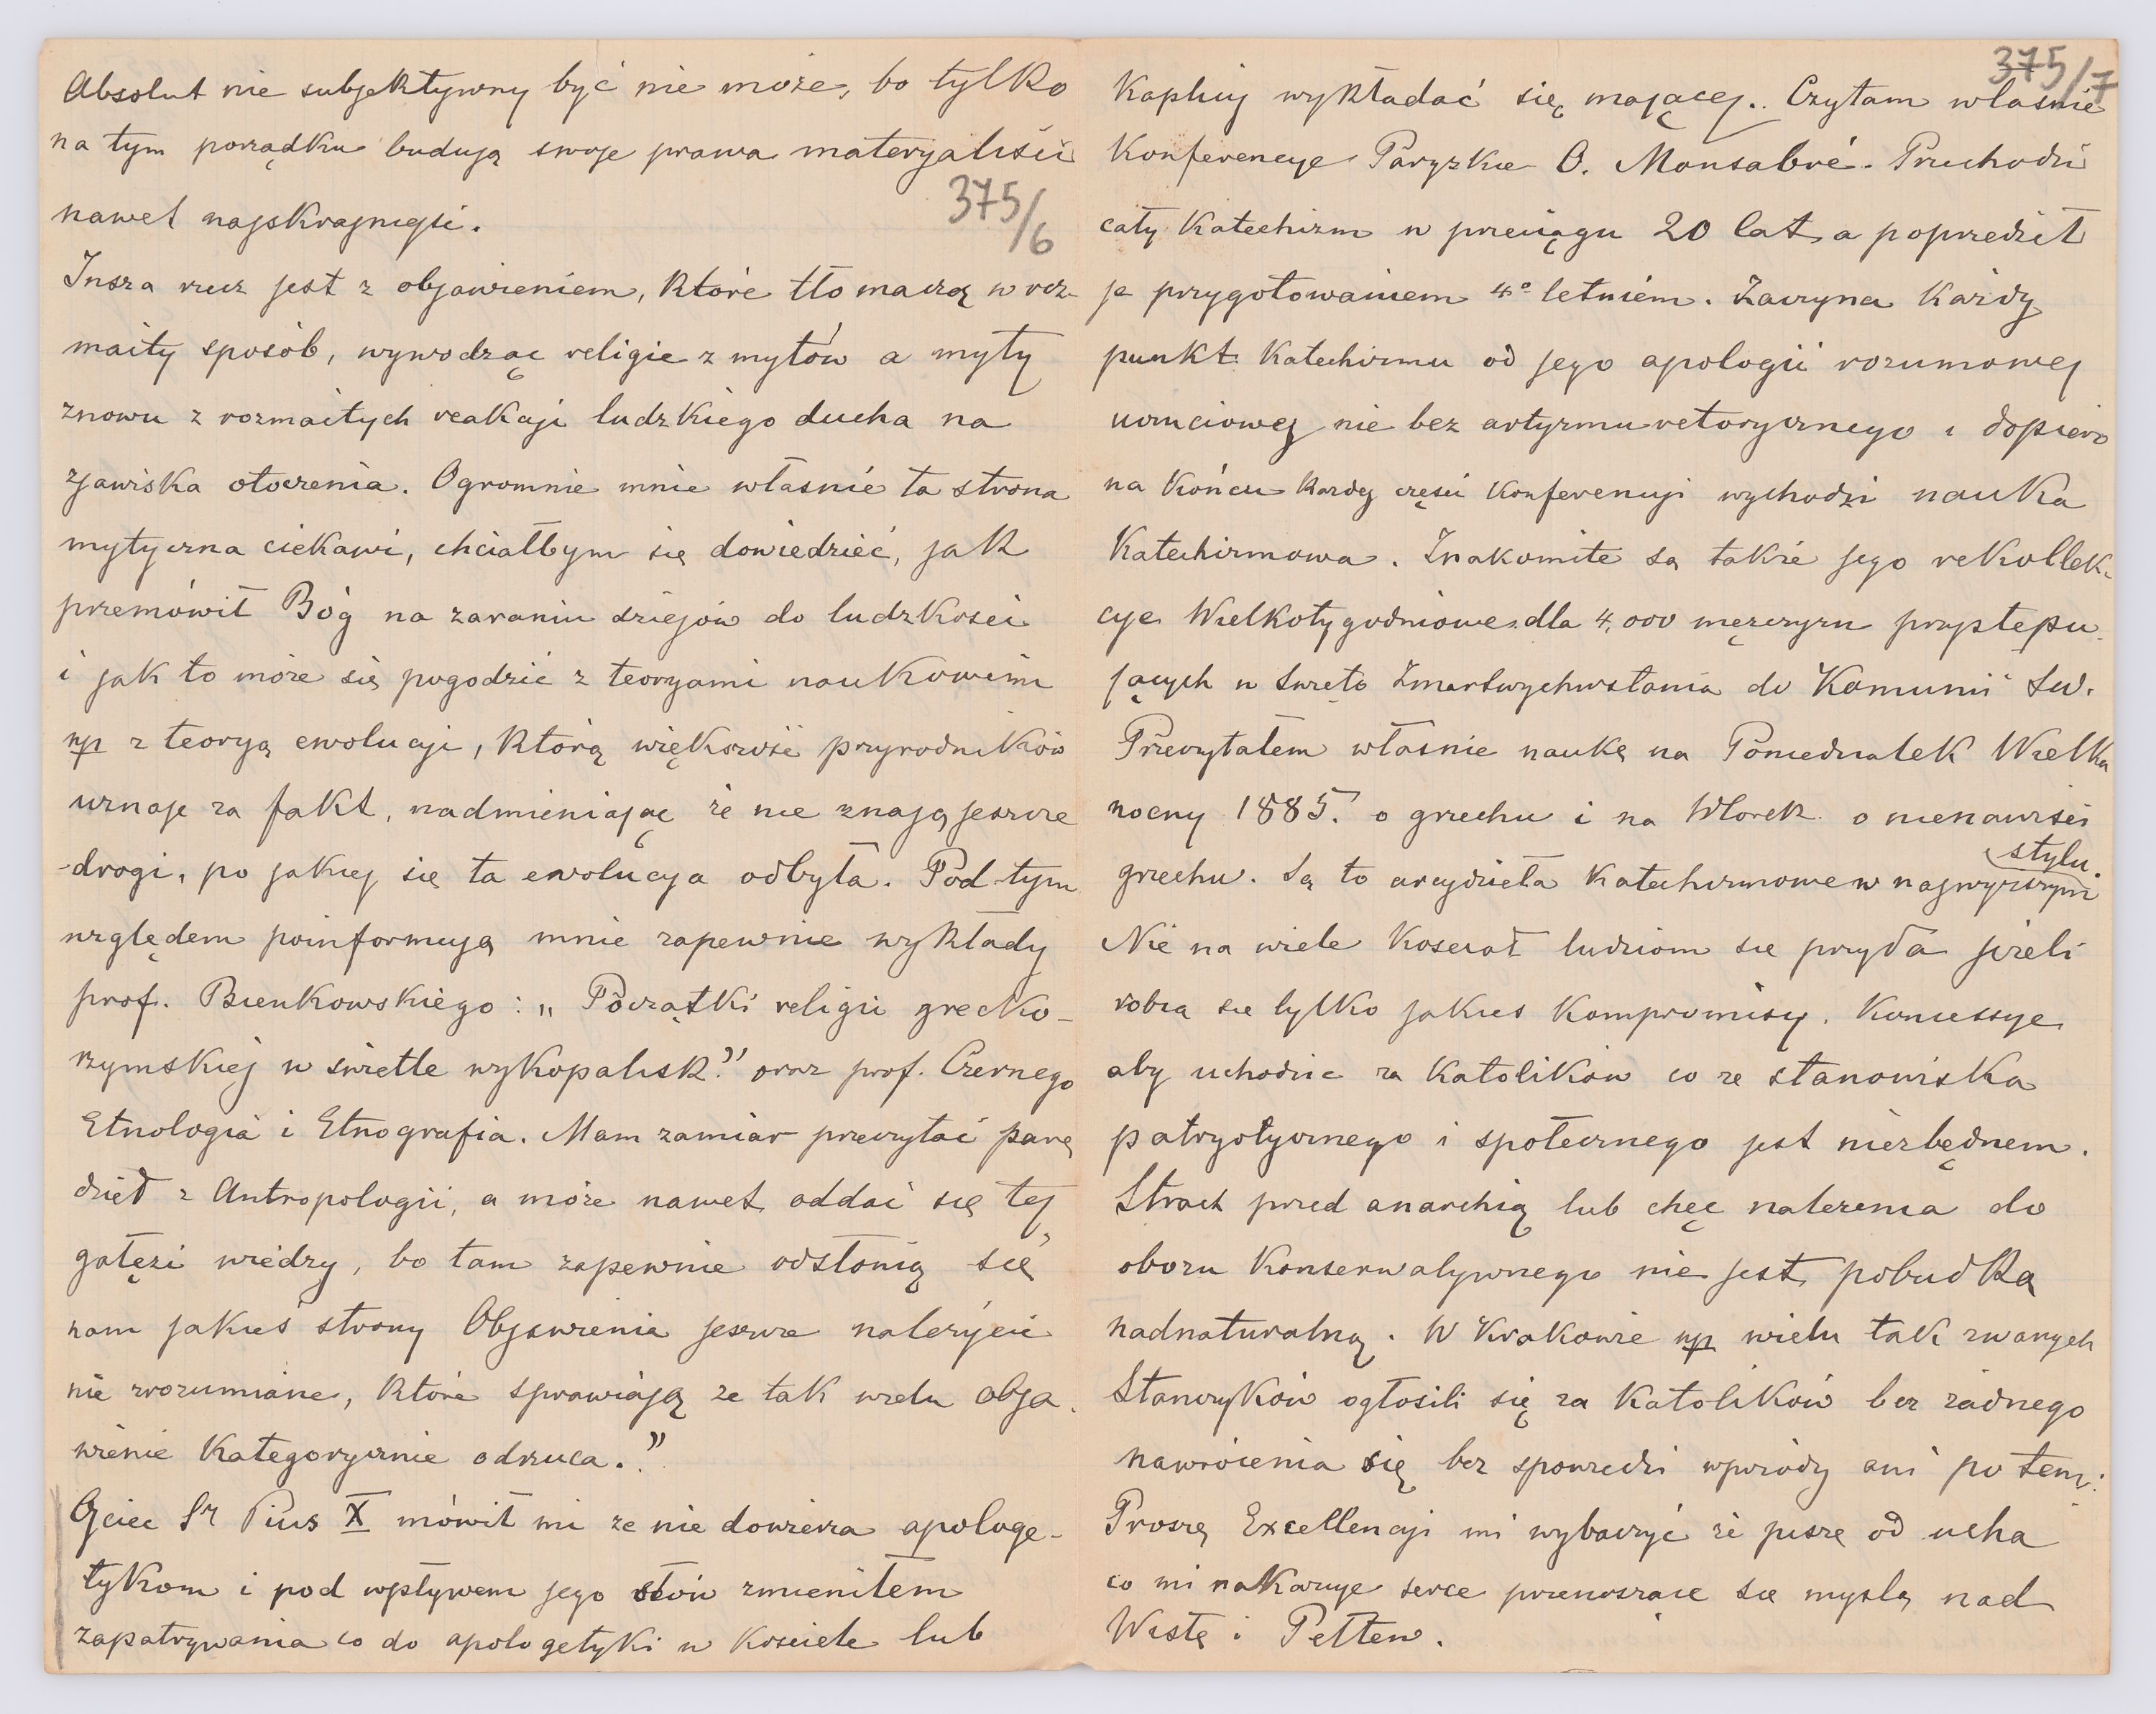 Absolut nie subjektywny być nie może, bo tylko
na tym porządku budują swoje prawa materyaliści
nawet najskrajniejsi.
375/6
Insza rzecz jest z objawieniem, które tłomaczą w roz-
maity sposób, wywodząc religie z mytów a myty
znowu z rozmaitych reakcji ludzkiego ducha na
zjawiska otoczenia. Ogromnie mnie własnie ta strona
mytyczna ciekawi, chciałbym się dowiedzieć, jak
przemówił Bóg na zaraniu dziejów do ludzkosci
i jak to może się pogodzić z teoryami naukowemi
np z teoryą ewolucji, którą większość przyrodników
uznaje za fakt, nadmieniając że nie znają jeszcze
drogi, po jakiej się ta ewolucya odbyła. Pod tym
względem poinformują mnie zapewnie wykłady
prof. Bienkowskiego: „Początki religii grecko-
rzymskiej w świetle wykopalisk." oraz prof. Czernego
Etnologia i Etnografia. Mam zamiar przeczytać parę
dzieł z Antropologii, a może nawet oddać się tej
gałęzi wiedzy, bo tam zapewnie odsłonią się
nam jakieś strony Objawienia jeszcze należycie
nie zrozumiane, które sprawiają ze tak wielu obja-
wienie kategorycznie odrzuca."
Ojciec Sr Pius X mówił mi ze nie dowierza apologe-
tykom i pod wpływem jego słów zmieniłem
zapatrywania co do apologetyki w Kosciele lub
375/7
Kaplicy wykładać się mającej. Czytam własnie
Konferencye Paryzkie O. Monsabré. Przechodzi
cały Katechizm w przeciągu 20 lat, a poprzedził
je przygotowaniem 4o letniem. Zaczyna każdy
punkt Katechizmu od jego apologii rozumowej
uczuciowej nie bez artyzmu retorycznego i dopiero
na końcu każdej części Konferencyi wychodzi nauka
Katechizmowa. Znakomite są także jego rekollek-
cye Wielkotygodniowe dla 4,000 męzczyzn przystępu-
jących w Święto Zmartwychwstania do Komunii Sw.
Przeczytałem własnie naukę na Poniedziałek Wielka
nocny 1885. o grzechu i na Wtorek o nienawisci
grzechu. Są to arcydzieła Katechizmowe w najwyższym stylu.
Nie na wiele Kosciół ludziom sie przyda jeżeli
robią sie tylko jakies kompromisy. Koncessye
aby uchodzic za Katolików co ze stanowiska
patryotycznego i społecznego jest niezbędnem.
Strach przed anarchią lub chęc nalezenia do
obozu konserwatywnego nie jest pobudką
nadnaturalną. W Krakowie np wielu tak zwanych
Stanczyków ogłosili się za Katolików bez żadnego
nawrócenia się bez spowiedzi wprzódy ani potem.
Proszę Excellencji mi wybaczyć że piszę od ucha
co mi nakazuje serce przenosząc sie myslą nad
Wisłę i Pełtew.